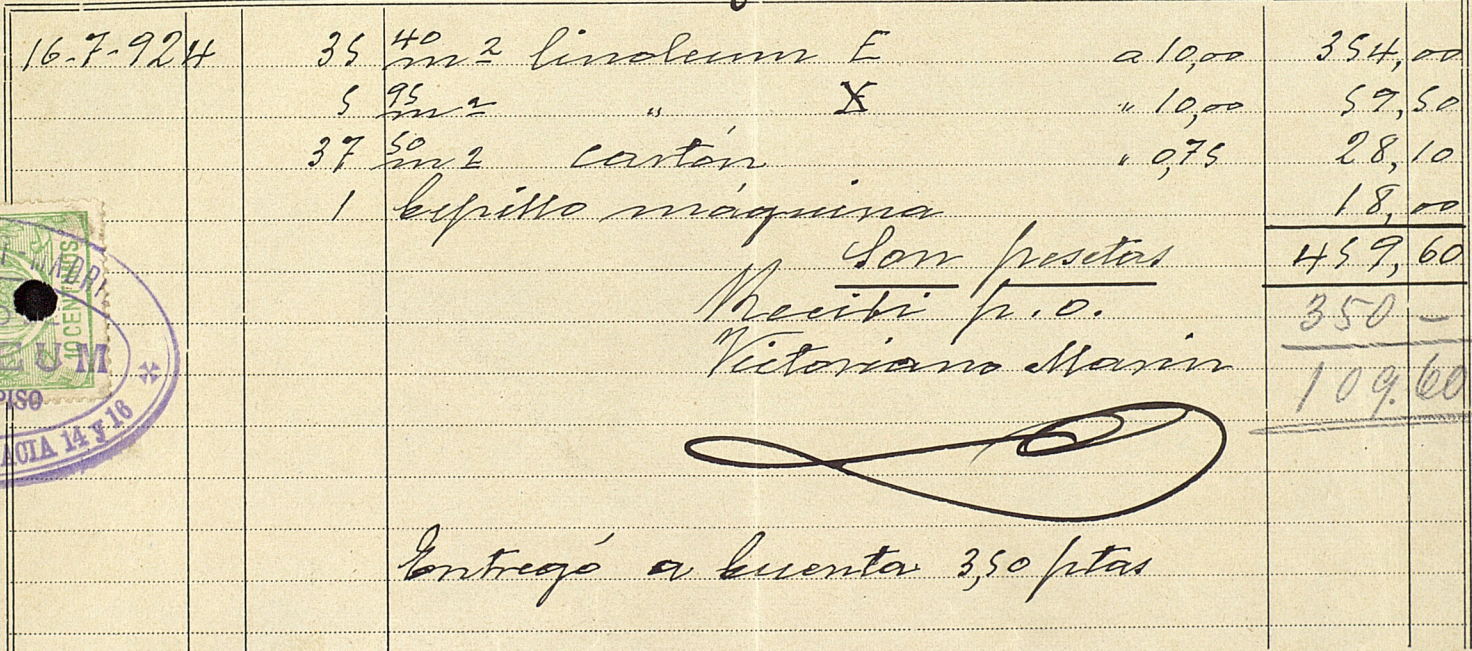 16-7-924 35 40 m2 linoleum E a 10,00 354,00
5 95 m2 " X " 10,00 59,50
37 50 m2 cartón " 0,75 28,10
1 cepillo máquina 18,00
Son pesetas 459,60
Recibi p.o. 350 -
Victoriano Marin 109.60
Entregó a cuenta 3,50 ptas
MADRI
10 CENTIMOS
EUM
PISO
ACIA 14 y 16